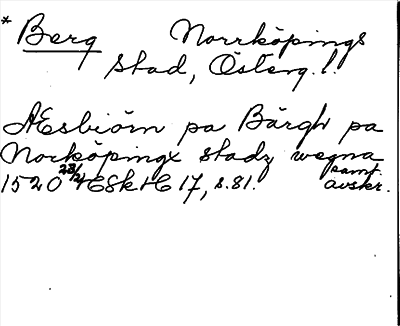 * Berg Norrköpings
stad, Österg.l.
Æsbiörn pa Bärgh pa
Norköpingx stadz wegna
1520 23/4 ESkHC 17, s. 81. samt. avskr.